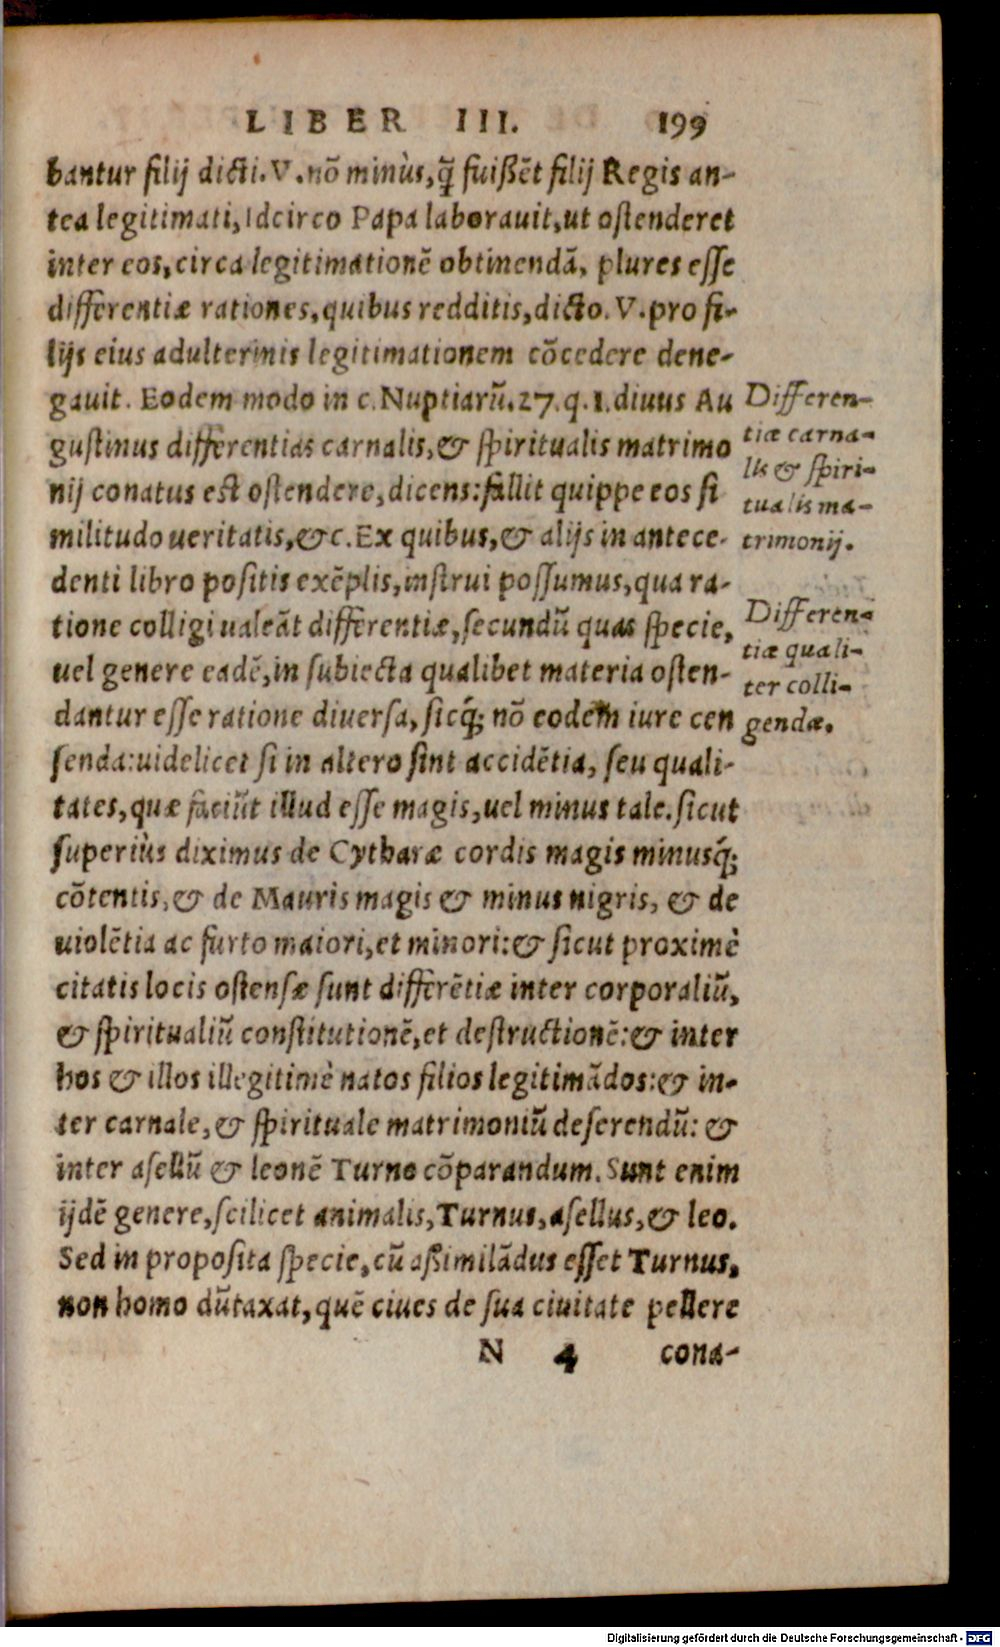 LIBER III. 199
bantur filij dicti. V. nõ minùs, q̃ fuißẽt filij Regis an-
tea legitimati, Idcirco Papa laborauit, ut oſtenderet
inter eos, circa legitimationẽ obtinendã, plures eſſe
differentiæ rationes, quibus redditis, dicto. V. pro fi-
lijs eius adulterinis legitimationem cõcedere dene-
gauit. Eodem modo in c. Nuptiarũ. 27. q. 1. diuus Au
guſtinus differentias carnalis, & ſpiritualis matrimo
nij conatus est oſtendere, dicens: fallit quippe eos ſi
militudo ueritatis, &c. Ex quibus, & alijs in antece-
denti libro poſitis exẽplis, inſtrui poſſumus, qua ra-
tione colligi ualeãt differentiæ, ſecundũ quas ſpecie,
uel genere eadẽ, in ſubiecta qualibet materia oſten-
dantur eſſe ratione diuerſa, ſicq́; nõ eodem iure cen
ſenda: uidelicet ſi in altero ſint accidẽtia, ſeu quali-
tates, quæ faciũt illud eſſe magis, uel minus tale. ſicut
ſuperiùs diximus de Cytharæ cordis magis minusq́;
cõtentis, & de Mauris magis & minus nigris, & de
uiolẽtia ac furto maiori, et minori: & ſicut proximè
citatis locis oſtenſæ ſunt differẽtiæ inter corporaliũ,
& ſpiritualiũ conſtitutionẽ, et deſtructionẽ: & inter
hos & illos illegitimè natos filios legitimãdos: & in-
ter carnale, & ſpirituale matrimoniũ deſerendũ: &
inter aſellũ & leonẽ Turno cõparandum. Sunt enim
ijdẽ genere, ſcilicet animalis, Turnus, aſellus, & leo.
Sed in propoſita ſpecie, cũ aßimilãdus eſſet Turnus,
non homo dũtaxat, quẽ ciues de ſua ciuitate pellere
N 4 cona-
Differen-
tiæ carna-
lis & ſpiri-
tualis ma-
trimonij.
Differen-
tiæ quali-
ter colli-
gendæ.
Digitalisierung gefördert durch die Deutsche Forschungsgemeinschaft - DFG